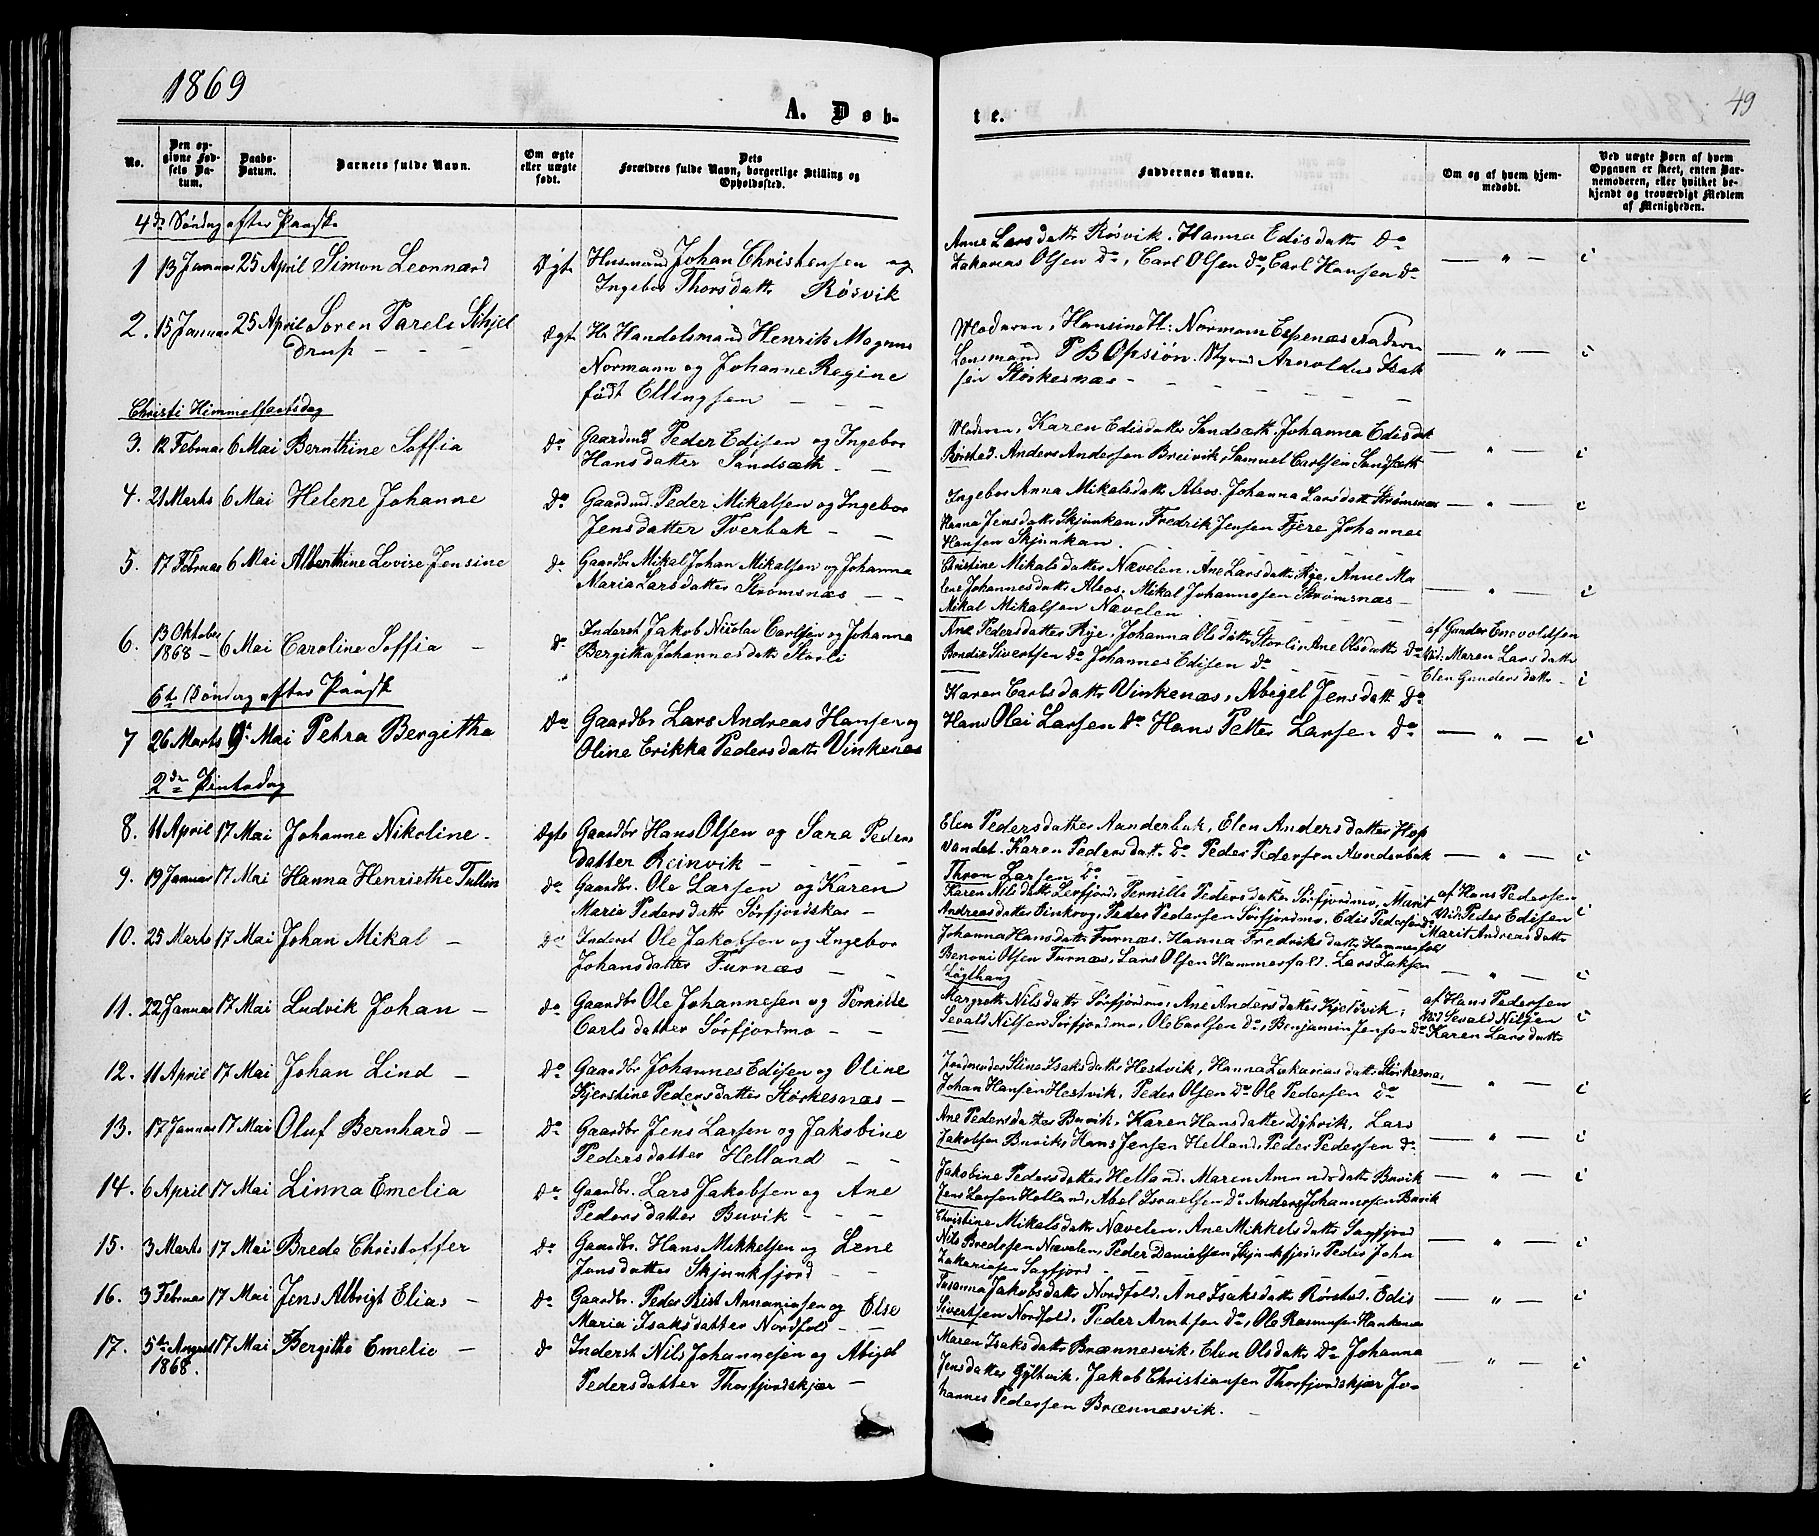 1869
49
A. Døb-
te.
No.
Den opgivne Fødsels Datum.
Daabs-Datum.
Barnets fulde Navn.
Om ægte eller uægte født.
Dets Forældres fulde Navn, borgerlige Stilling og Opholdssted.
Faddernes Navne.
Om og af hvem hjemmedøbt.
Ved uægte Børn af hvem Opgaven er skeet, enten Barnemoderen, eller hvilket bekjendt og troværdigt Medlem af Menigheden.
4de Søndag efter Paaske
1 13 Januar 25 April Simon Leonnard Ægte Husmand Johan Christensen og
Ingebor Thorsdatter Røsvik
Anne Larsdatter Røsvik. Hanna Edisdatter Do
Zakarias Olsen Do, Carl Olsen Do, Carl Hansen Do
2. 15 Januar 25 April Søren Pareli Schjel
drup
Ægte Hr Handelsmand Henrik Magnus
Normann og Johanne Regine
født Ellingsen
Moderen, Hansine H: Normann Espenæs Faderen
Lensmand P B Opsiøn. Arnoldus Isak
sen Størkesnæs
Christi Himmelfartsdag
3. 12 Februar 6 Mai Bernthine Soffia Do Gaardmd Peder Edisen og Ingebor
Hansdatter Sandsæth
Moderen, Karen Edisdatter Sandsæth, Johanna Edisdt
Rørstad. Anders Andersen Breivik, Samuel Carlsen Sandsæth
4. 21 Marts 6 Mai Helene Johanne Do Gaardmd Peder Mikalsen og Ingebor
Jensdatter Tverbak
Ingebor Anna Mikalsdatter Alsos. Johanna Larsdatter Strømsnæs
Hanna Jensdatter Skjunkan, Fredrik Jensen Fjere Johannes
Hansen Skjunkan
5. 17 Februar 6 Mai Alberthine Lovise Jensine Do Gaardbr Mikal Johan Mikalsen og Johanna
Maria Larsdatter Strømsnæs
Christine Mikalsdatter Nævelen. Ane Larsdatter Rye, Anne Ma
lene Johannesdatter Alsos, Mikal Johannesen Strømsnæs
Mikal Mikalsen Nævelen
6. 13 Oktober 1868 6 Mai Caroline Soffia Do Inderst Jakob Nicolai Carlsen og Johanna
Bergitha Johannesdatter Storli
Ane Pedersdatter Rye, Johanna Olsdatter Storli Ane Olsdatter Do
Bendix Sivertsen Do Johannes Edisen Do
af Gunder Enevoldsen
Vid: Maren Larsdatter
Elen Gundersdatter
6te Søndag efter Paaske
7 26 Marts 9de Mai Petra Bergitha Do Gaardbr Lars Andreas Hansen og
Oline Erikka Pedersdatter Vinkenæs
Karen Carlsdatter Vinkenæs, Abigel Jensdatter Do
Hans Olai Larsen Do Hans Petter Larsen Do
2den Pintsedag
8. 11 April 17 Mai Johanne Nikoline Ægte Gaardbr Hans Olsen og Sara Peders
datter Reinvik
Elen Pedersdatter Aunderbak, Elen Andersdatter Hop
vandet. Karen Pedersdatter Do Peder Pedersen Aunderbak
Thron Larsen Do
9. 19 Januar 17 Mai Hanna Henriethe Tullin Do Gaardbr. Ole Larsen og Karen
Maria Pedersdatter Sørfjordskar
Karen Nilsdatter Leifjord, Pernille Pedersdatter Sørfjordmo, Marit
Andreasdatter Vinkrog, Peder Pedersen Sørfjordmo, Edis Pedersen Do
af Hans Pedersen
Vid Peder Edisen
Marit Andreasdatter
10. 25 Marts 17 Mai Johan Mikal Do Inderst Ole Jakobsen og Ingebor
Johansdatter Furnæs
Johanna Hansdatter Furnæs. Hanna Fredriksdatter Hammerfald
Benoni Olsen Furnæs, Lars Olsen Hammerfald. Lars Isaksen
Løgthaug
11. 22 Januar 17 Mai Ludvik Johan Do Gaardbr Ole Johannesen og Pernille
Carlsdatter Sørfjordmo
Margreth Nilsdatter Sørfjordmo, Ane Andersdatter Kjeldvik,
Sevald Nilsen Sørfjordmo, Ole Carlsen Do, Benjamin Jensen Do
af Hans Pedersen
Vid Sevald Nilsen
Karen Larsdatter
12. 11 April 17 Mai Johan Lind Do Gaardbr Johannes Edisen og Oline
Kjerstine Pedersdatter Størkesnæs
Jordmoder Stine Isaksdatter Hestvik, Hanna Zakariasdatter Størkesnæs
Johan Hansen Hestvik, Peder Olsen Do Ole Pedersen Do
13. 17 Januar 17 Mai Oluf Bernhard Do Gaardbr Jens Larsen og Jakobine
Pedersdatter Helland
Ane Pedersdatter Buvik, Karen Hansdatter Dybvik, Lars
Jakobsen Buvik, Hans Jensen Helland, Peder Pedersen Do
14. 6 April 17 Mai Linna Emelia Do Gaardbr. Lars Jakobsen og Ane
Pedersdatter Buvik
Jakobine Pedersdatter Helland. Maren Amundsdatter Buvik
Jens Larsen Helland, Abel Israelsen Do Anders Johannesen Buvik
15. 3 Marts 17 Mai Brede Christoffer Do Gaardbr. Hans Mikkelsen og Lene
Jensdatter Skjunkfjord
Christine Mikalsdatter Nævelen, Ane Mikkelsdatter Sagfjord
Nils Bredesen Nævelen, Peder Danielsen Skjunkfjord, Peder John
Zakariasen Sagfjord
16. 3 Februar 17 Mai Jens Albrigt Elias Do Gaardbr. Peder Rist Annaniasen og Else
Maria Isaksdatter Nordfold
Susanna Jakobsdatter Nordfold. Ane Isaksdatter Rørstad. Edis
Sivertsen Nordfold, Peder Arntsen Do, Ole Rasmusen Hankenæs
17. 5te August 1868. 17 Mai Bergitha Emelie Do Inderst Nils Johannesen og Abigel
Pedersdatter Thorfjordskjær
Maren Isaksdatter Brænnesvik, Elen Olsdatter Do Johanna
Jensdatter Gyltvik, Jakob Christiansen Thorfjordskjær Jo-
hannes Pedersen Brænnesvik.